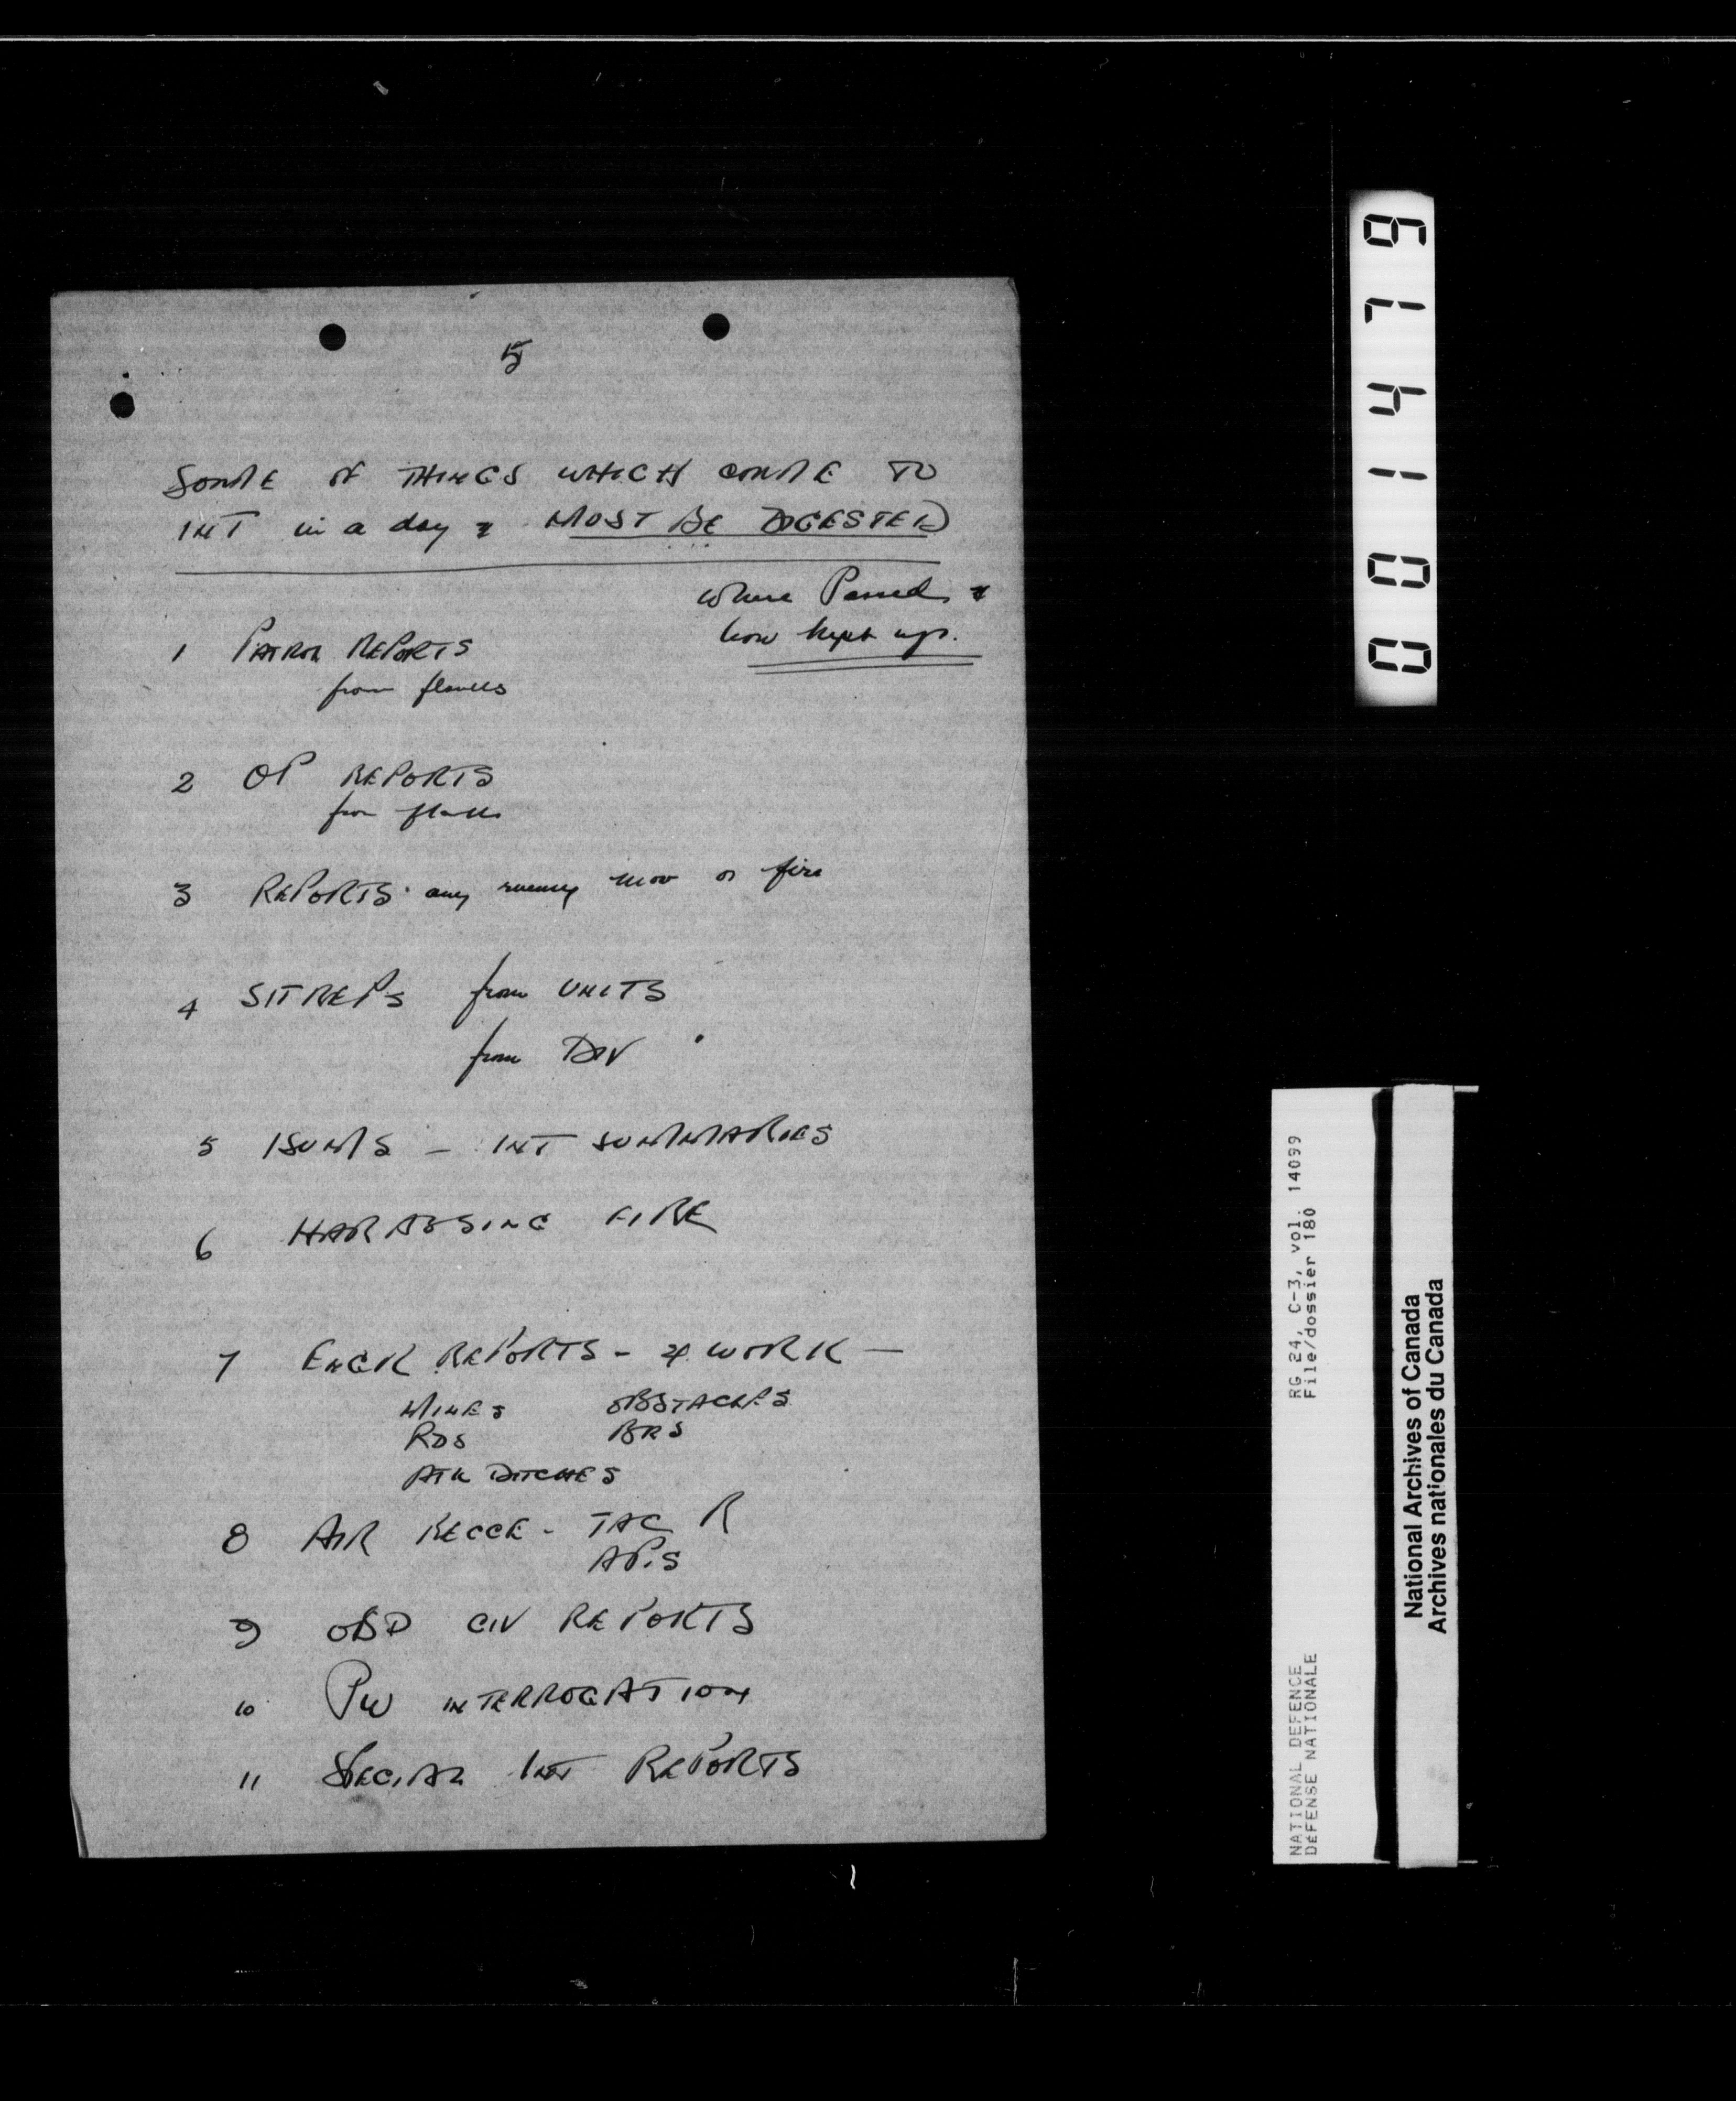 5
SOME OF THINGS WHICH COME TO
INT in a day & MUST BE DIGESTED
where Passed &
how kept up.
1 PATROL REPORTS
from flanks
2 OP REPORTS
from flanks
3 REPORTS any enemy mov or fire
4 SITREPS from UNITS
from DIV
5 ISUMS - INT SUMMARIES
6 HARASSING FIRE
7 ENGR REPORTS - & WORK -
MINES OBSTACLES
RDS BRS
ATK DITCHES
8 AIR RECCE - TAC R
AP.S
9 CIV REPORTS
10 PW INTERROGATION
11 SPECIAL INT REPORTS
001419
NATIONAL DEFENCE RG 24, C-3, vol. 14099
DÉFENSE NATIONALE File/dossier 180
National Archives of Canada
Archives nationales du Canada